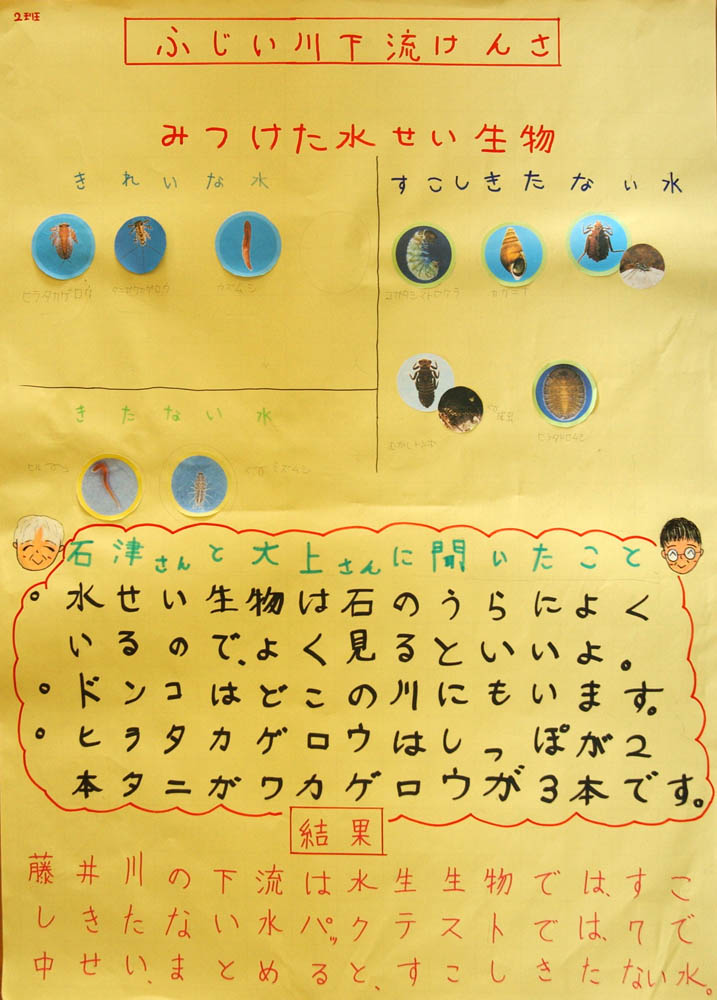 2班
ふじい川下流けんさ
みつけた水せい生物
きれいな水
ヒラタカゲロウ
ウズムシ
すこしきたない水
カワニナ
ヒラタドロムシ
きたない水
石津さんと大上さんに聞いたこと
。水せい生物は石のうらによく
いるので、よく見るといいよ。
。ドンコはどこの川にもいます。
。ヒラタカゲロウはしっぽが2
本タニガワカゲロウが3本です。
結果
藤井川の下流は水生生物では、すこ
しきたない水パックテストでは、7で
中せい、まとめると、すこしきたない水。